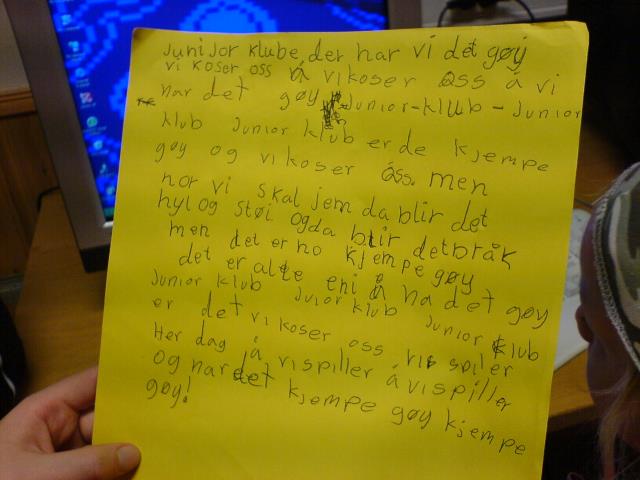 junijor klube, der har vi det gøy
vi koser oss å vi koser oss å vi
har det gøy junior-klub-junior
klub junior klub er de kjempe
gøy og vi koser åss. men
nor vi skal jem da blir det
hyl og støi og da blir det bråk
men det er no kjempe gøy
det er alle eni å ha det gøy
Junior klub Junior klub Junior klub
er det vi koser oss vi spiler
Her dag å vi spiller å vi spiller
og har det kjempe gøy kjempe
gøy!